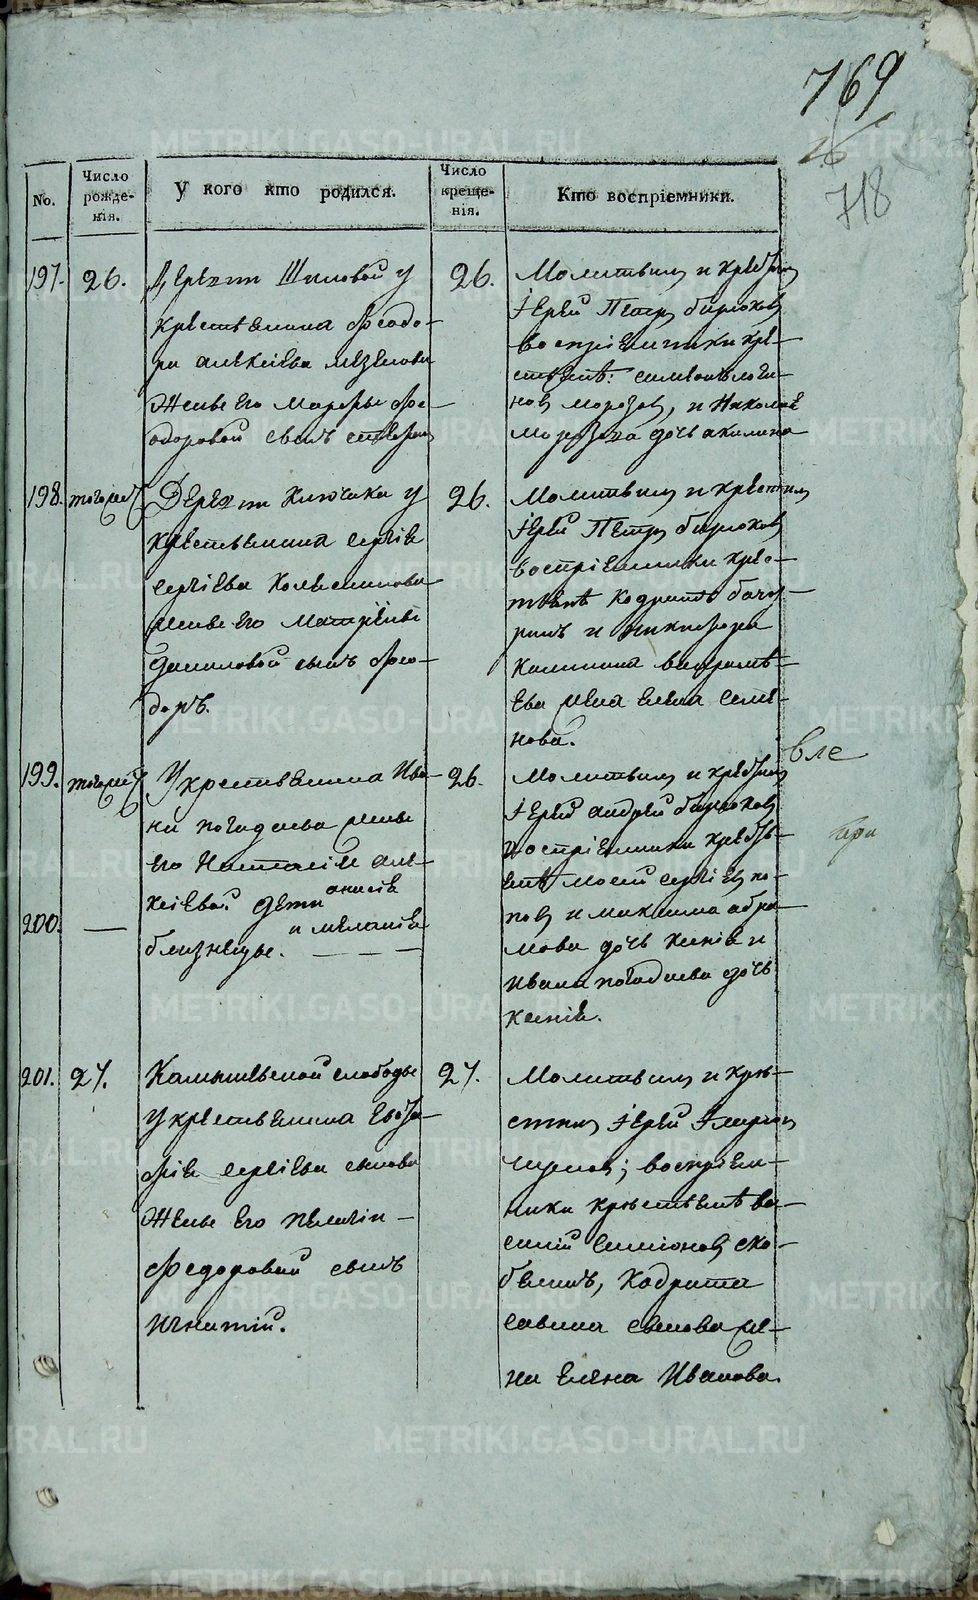 769
26
718
No.
Число рожде-
нія.
У кого кто родился.
Число креще-
нія.
Кто воспріемники.
197.
26.
Дерѣвни Шиловой у
крестьянина Феодо-
ра Алексіева
Жены его Марфы Фе-
одоровой сынъ
26.
Молитвилъ и крестилъ
Іерей Петръ Бирюковъ
воспріемники кре-
стьяне: Симеонъ Логи-
новъ Морозовъ, и Николая
Морозова дочь Акилина
198.
тогожъ
Деревни Ключики у
крестьянина Сергія
Сергіева Колесникова
жены его Матрены
Даниловой сынъ Фео-
доръ.
26.
Молитвилъ и крестилъ
Іерей Петръ Бирюковъ
воспріемники крес-
тьяне Кодратъ
и Никифора
Калинина
жена Елена Семе-
нова.
199.
тогожъ
У крестьянина Ива-
на Погадаева жены
его Наталіи Але-
ксіевой дети
анисія
и меланія
близнецы.
200.
26.
Молитвилъ и крестилъ
Іерей Андрей Бирюковъ
воспріемники крестья-
яне Моѵсей Сергіевъ По-
повъ и Максима Абра-
мова дочь Ксенія и
Ивана Погадаева дочь
Ксенія.
вле
при
201.
27.
Камышевской слободы
у крестьянина Евста-
фія Сергіева сынова
Жены его Пелагіи
Федоровой сынъ
Игнатій.
27.
Молитвилъ и кре-
стилъ Іерей
воспріем-
ники крестьяне Ва-
силій Симіоновъ Ско-
белинъ, Кодрата
Савина сынова же-
на Елена Иванова.
METRIKI.GASO-URAL.RU